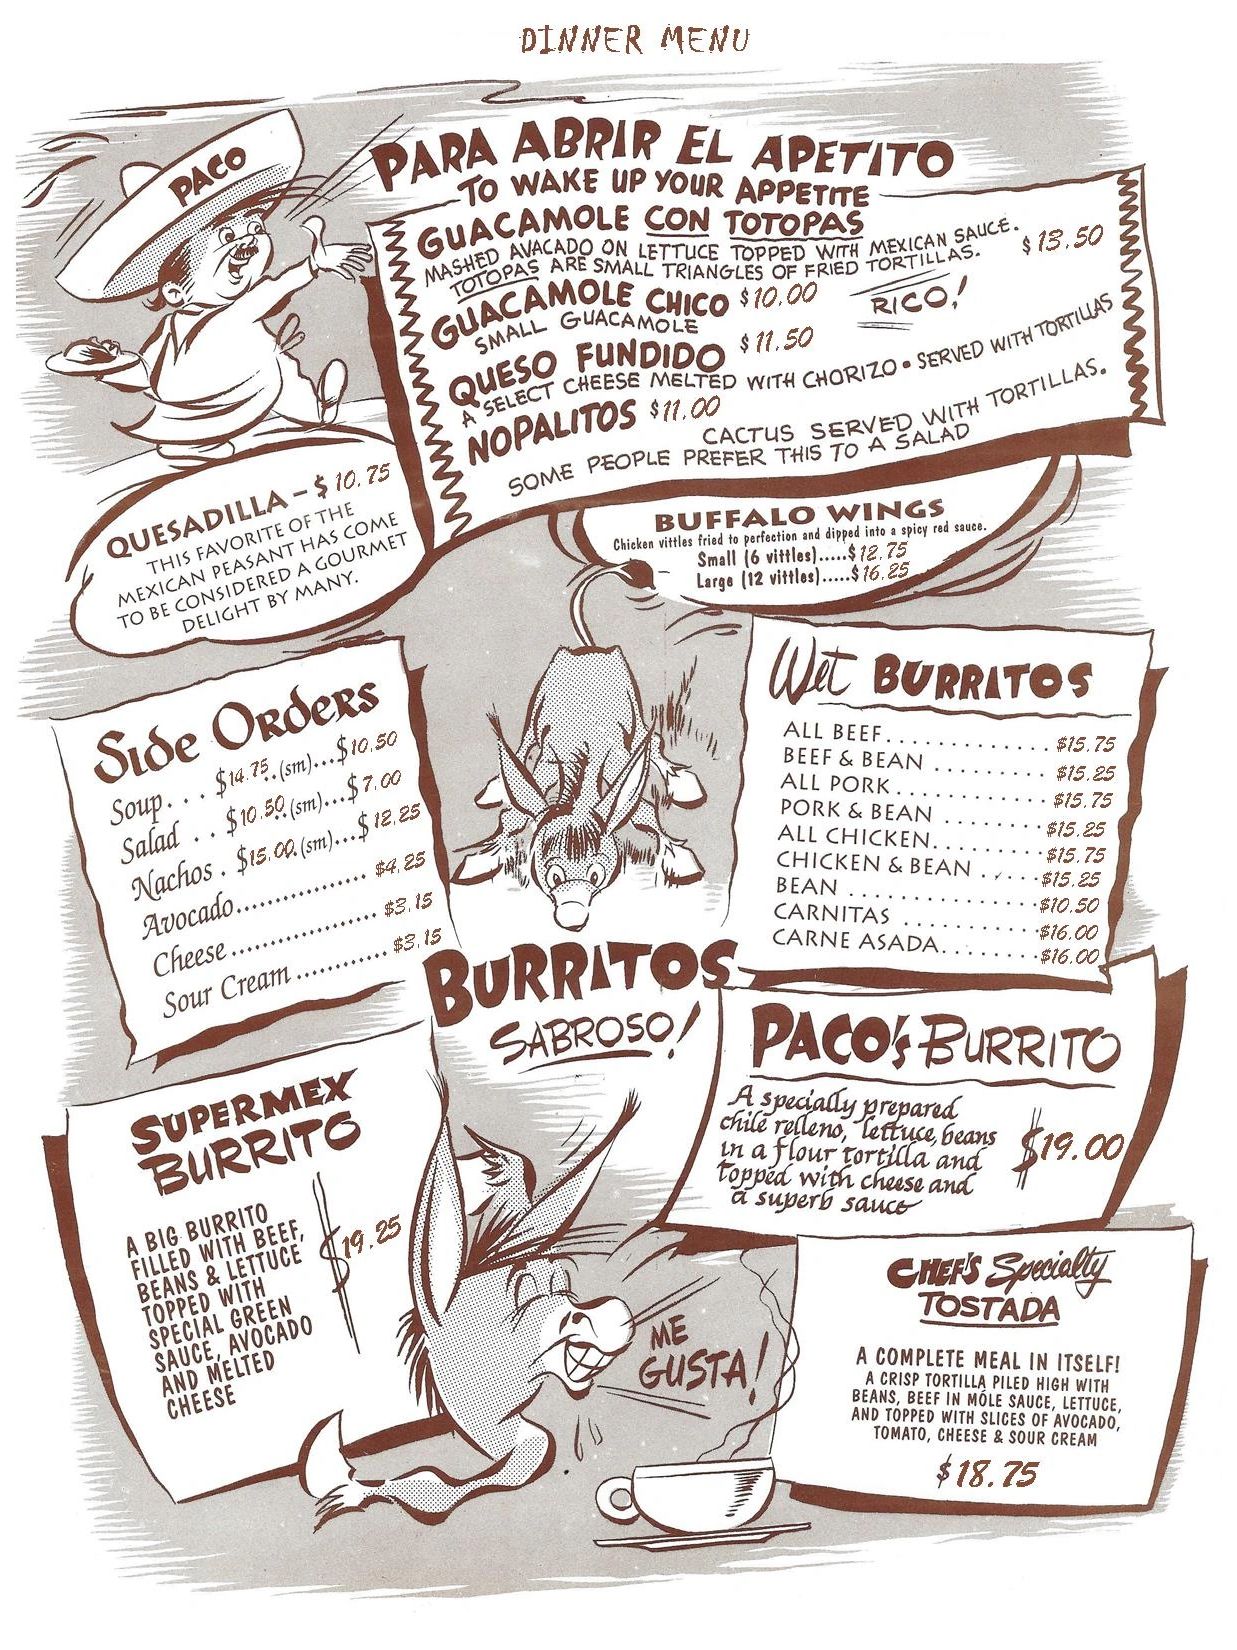 DINNER MENU
PACO
PARA ABRIR EL APETITO
TO WAKE UP YOUR APPETITE
GUACAMOLE CON TOTOPAS
MASHED AVACADO ON LETTUCE TOPPED WITH MEXICAN SAUCE. $13.50
TOTOPAS ARE SMALL TRIANGLES OF FRIED TORTILLAS.
GUACAMOLE CHICO $10.00
RICO!
SMALL GUACAMOLE
QUESO FUNDIDO $11.50
A SELECT CHEESE MELTED WITH CHORIZO • SERVED WITH TORTILLAS
NOPALITOS $11.00
CACTUS SERVED WITH TORTILLAS.
SOME PEOPLE PREFER THIS TO A SALAD
QUESADILLA – $10.75
THIS FAVORITE OF THE
MEXICAN PEASANT HAS COME
TO BE CONSIDERED A GOURMET
DELIGHT BY MANY.
BUFFALO WINGS
Chicken vittles fried to perfection and dipped into a spicy red sauce.
Small (6 vittles).....$12.75
Large (12 vittles).....$16.25
Side Orders
Soup. . . $14.75..(sm)...$10.50
Salad . . $10.50.(sm)...$7.00
Nachos . $15.00.(sm)...$12.25
Avocado.................. $4.25
Cheese .................... $3.15
Sour Cream ............ $3.15
Wet BURRITOS
ALL BEEF. . . . . . . . . . . . . $15.75
BEEF & BEAN . . . . . . . . . $15.25
ALL PORK. . . . . . . . . . . . $15.75
PORK & BEAN . . . . . . . . $15.25
ALL CHICKEN. . . . . . . . . $15.75
CHICKEN & BEAN . . . . . $15.25
BEAN . . . . . . . . . . . . . . . $10.50
CARNITAS . . . . . . . . . . . $16.00
CARNE ASADA. . . . . . . . $16.00
BURRITOS
SABROSO!
PACO's BURRITO
A specially prepared
chile relleno, lettuce, beans
in a flour tortilla and
topped with cheese and
a superb sauce
$19.00
SUPERMEX
BURRITO
A BIG BURRITO
FILLED WITH BEEF,
BEANS & LETTUCE
TOPPED WITH
SPECIAL GREEN
SAUCE, AVOCADO
AND MELTED
CHEESE
$19.25
ME
GUSTA!
CHEF'S Specialty
TOSTADA
A COMPLETE MEAL IN ITSELF!
A CRISP TORTILLA PILED HIGH WITH
BEANS, BEEF IN MÓLE SAUCE, LETTUCE,
AND TOPPED WITH SLICES OF AVOCADO,
TOMATO, CHEESE & SOUR CREAM
$18.75